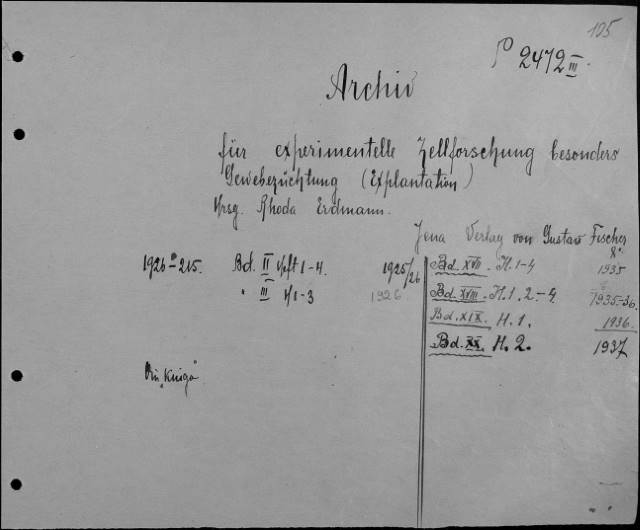 105
P 2472 III.
Archiv
für experimentelle Zellforschung besonders
Gewebezüchtung (Explantation)
Hrsg. Rhoda Erdmann.
Jena Verlag von Gustav Fischer
8°
1926 - 215. Bd. II Heft 1-4. 1925/26
" III H 1-3 1926
Bd. XVII. H. 1-4 1935
Bd. XVIII. H. 1. 2.-4. 1935-36.
Bd. XIX. H. 1. 1936.
Bd. XX. H. 2. 1937
"Kniga"